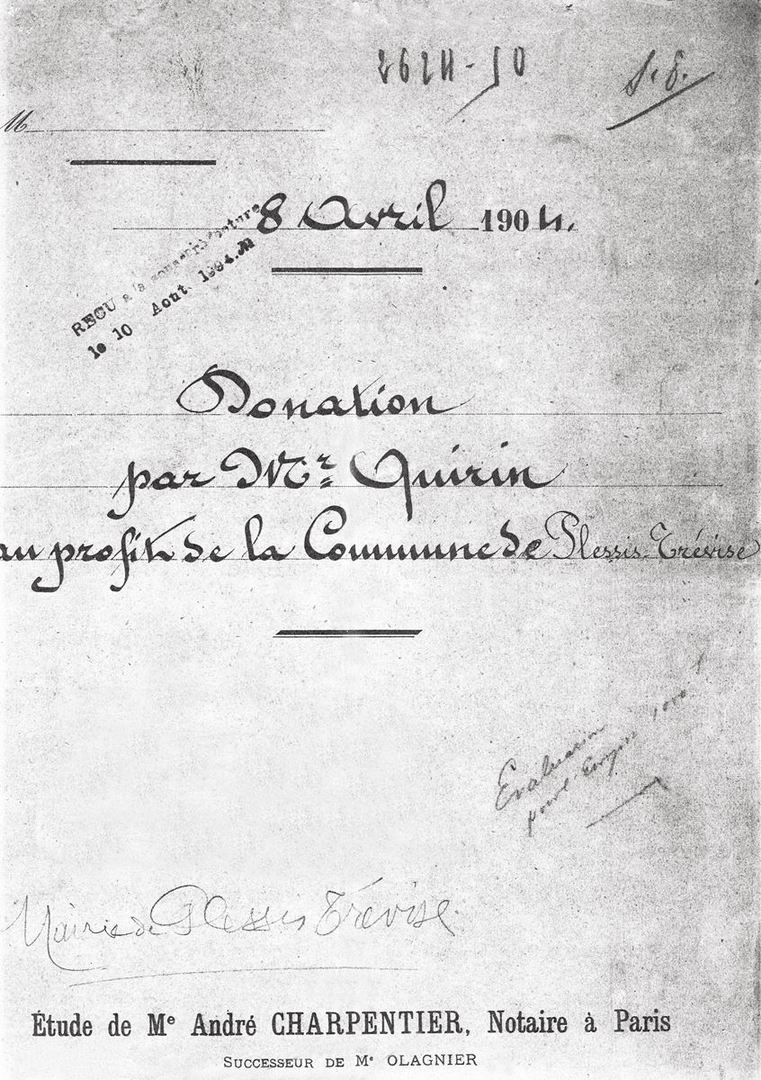 M
8 Avril 1904.
REÇU à la sous-préfecture
le 10 Aout 1904
Donation
par Mr Quirin
au profit de la Commune de Plessis-Trévise
Evaluation
pour l'
Mairie de Plessis Trévise
Étude de Me André CHARPENTIER, Notaire à Paris
SUCCESSEUR DE Me OLAGNIER